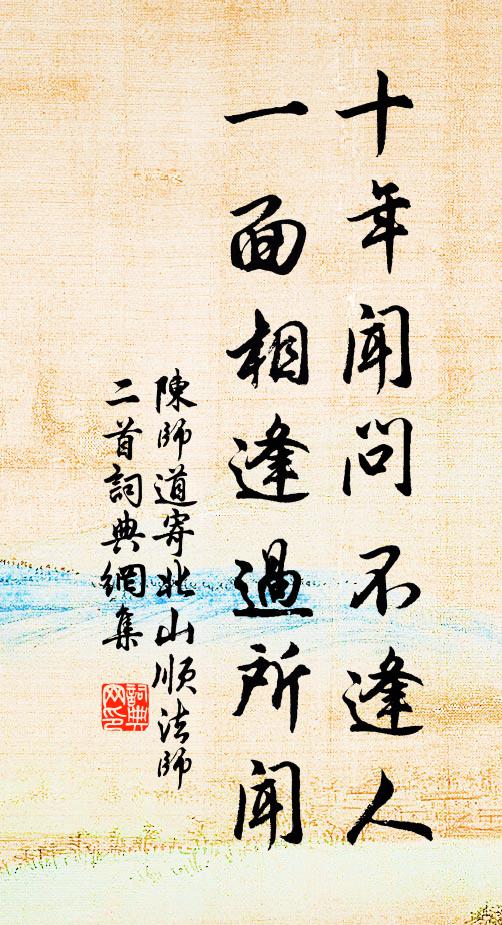 十年聞問不逢人
一面相逢過所聞
陳師道寄北山順法師
二首詞典網集
詞典網印